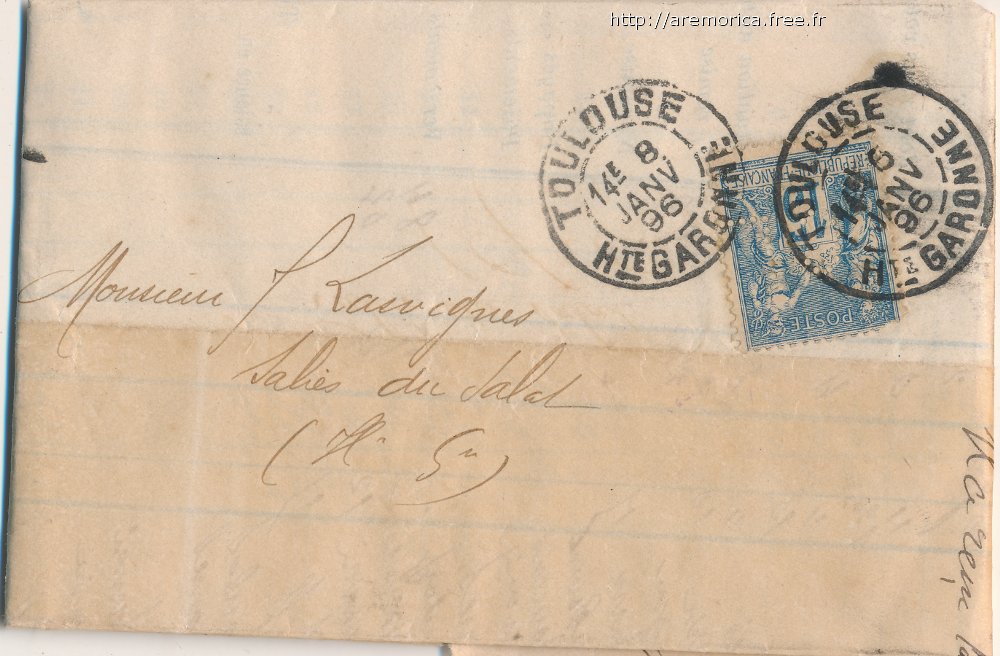 http://aremorica.free.fr
TOULOUSE
14E 8
JANV
96
HTE GARONNE
TOULOUSE
14E 8
JANV
96
HTE GARONNE
REPUBLIQUE FRANCAISE
15
POSTE
Monsieur J Lasvignes
Salies du Salat
(Hte Gne)